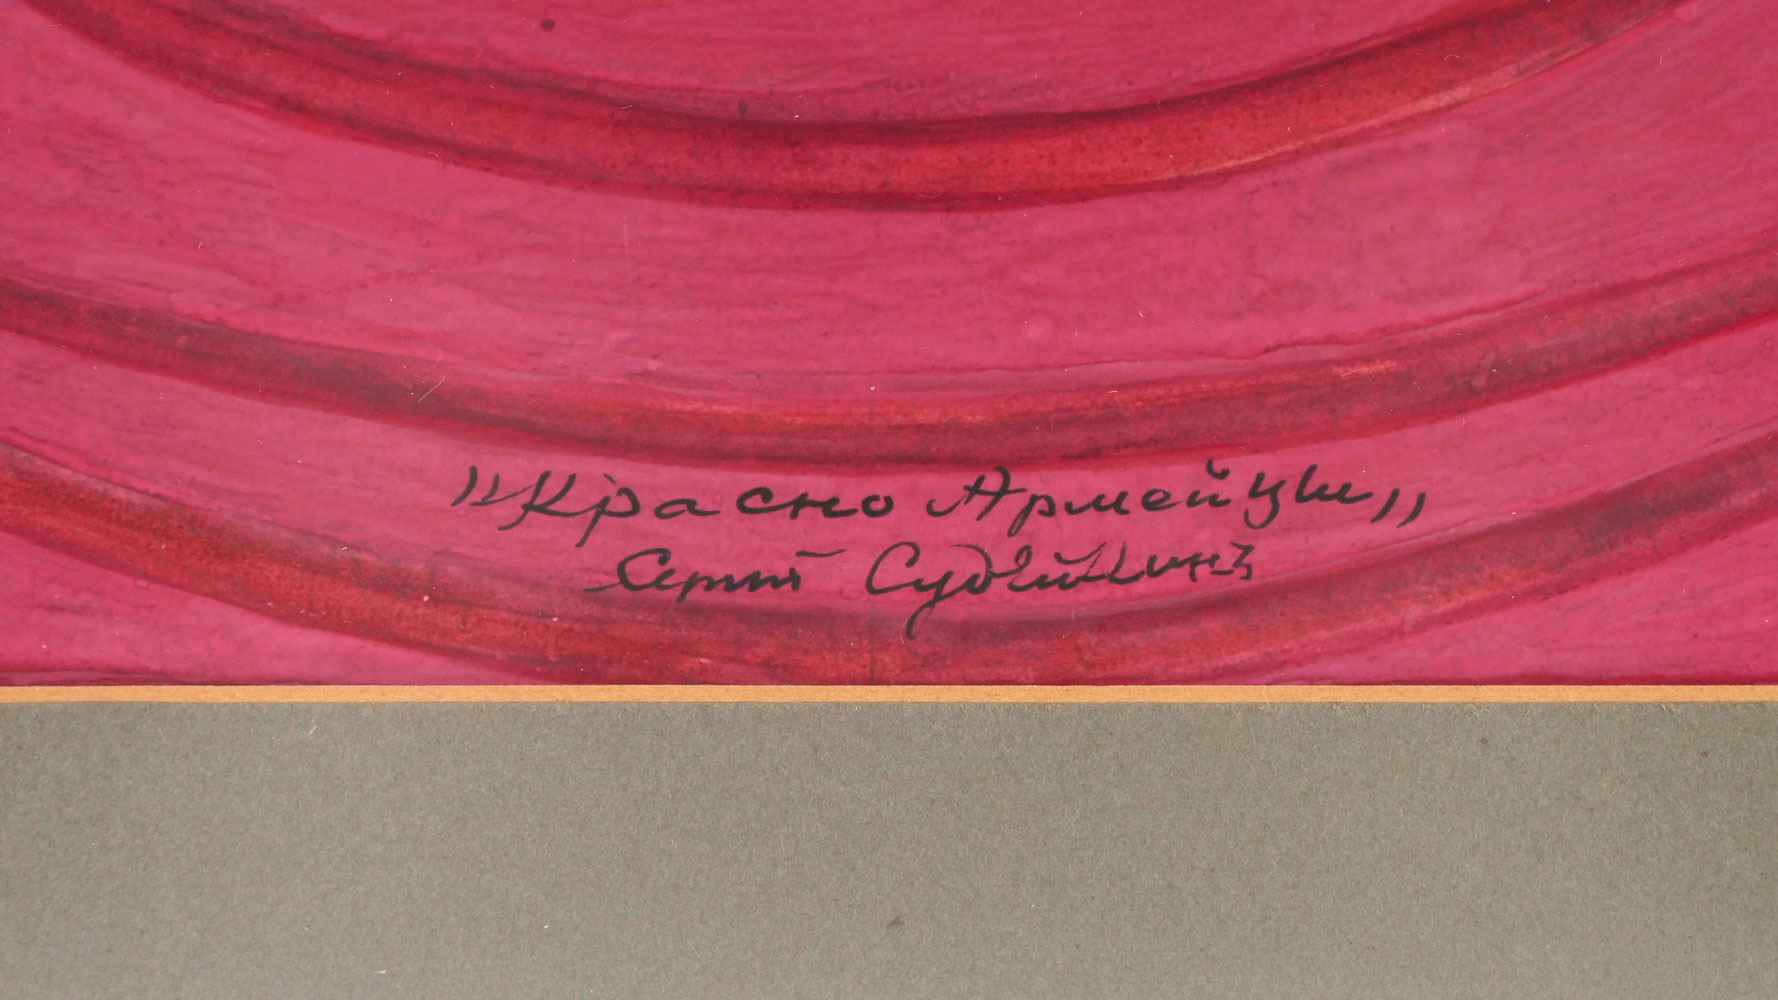 „Красно Армейцы„
Серги Судейкинъ